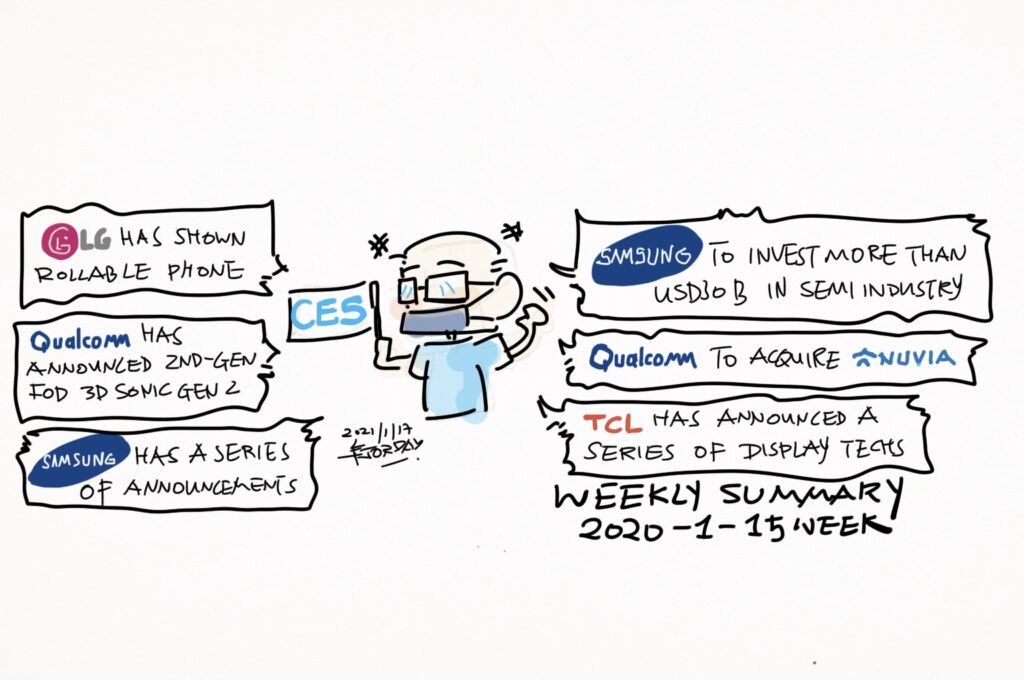 LG HAS SHOWN
ROLLABLE PHONE
Qualcomm HAS
ANNOUNCED 2ND-GEN
FOD 3D SONIC GEN 2
SAMSUNG HAS A SERIES
OF ANNOUNCEMENTS
CES
2021/1/17
SAMSUNG TO INVEST MORE THAN
USD30B IN SEMI INDUSTRY
Qualcomm TO ACQUIRE NUVIA
TCL HAS ANNOUNCED A
SERIES OF DISPLAY TECHS
WEEKLY SUMMARY
2020-1-15 WEEK